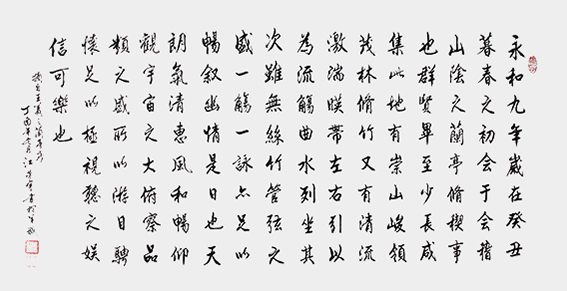 永和九年歲在癸丑
暮春之初會于會稽
山陰之蘭亭脩禊事
也群賢畢至少長咸
集此地有崇山峻領
茂林脩竹又有清流
激湍暎帶左右引以
為流觴曲水列坐其
次雖無絲竹管弦之
盛一觴一詠亦足以
暢叙幽情是日也天
朗氣清惠風和暢仰
觀宇宙之大俯察品
類之盛所以游目騁
懷足以極視聽之娛
信可樂也
摘自王羲之蘭亭序
丁酉年